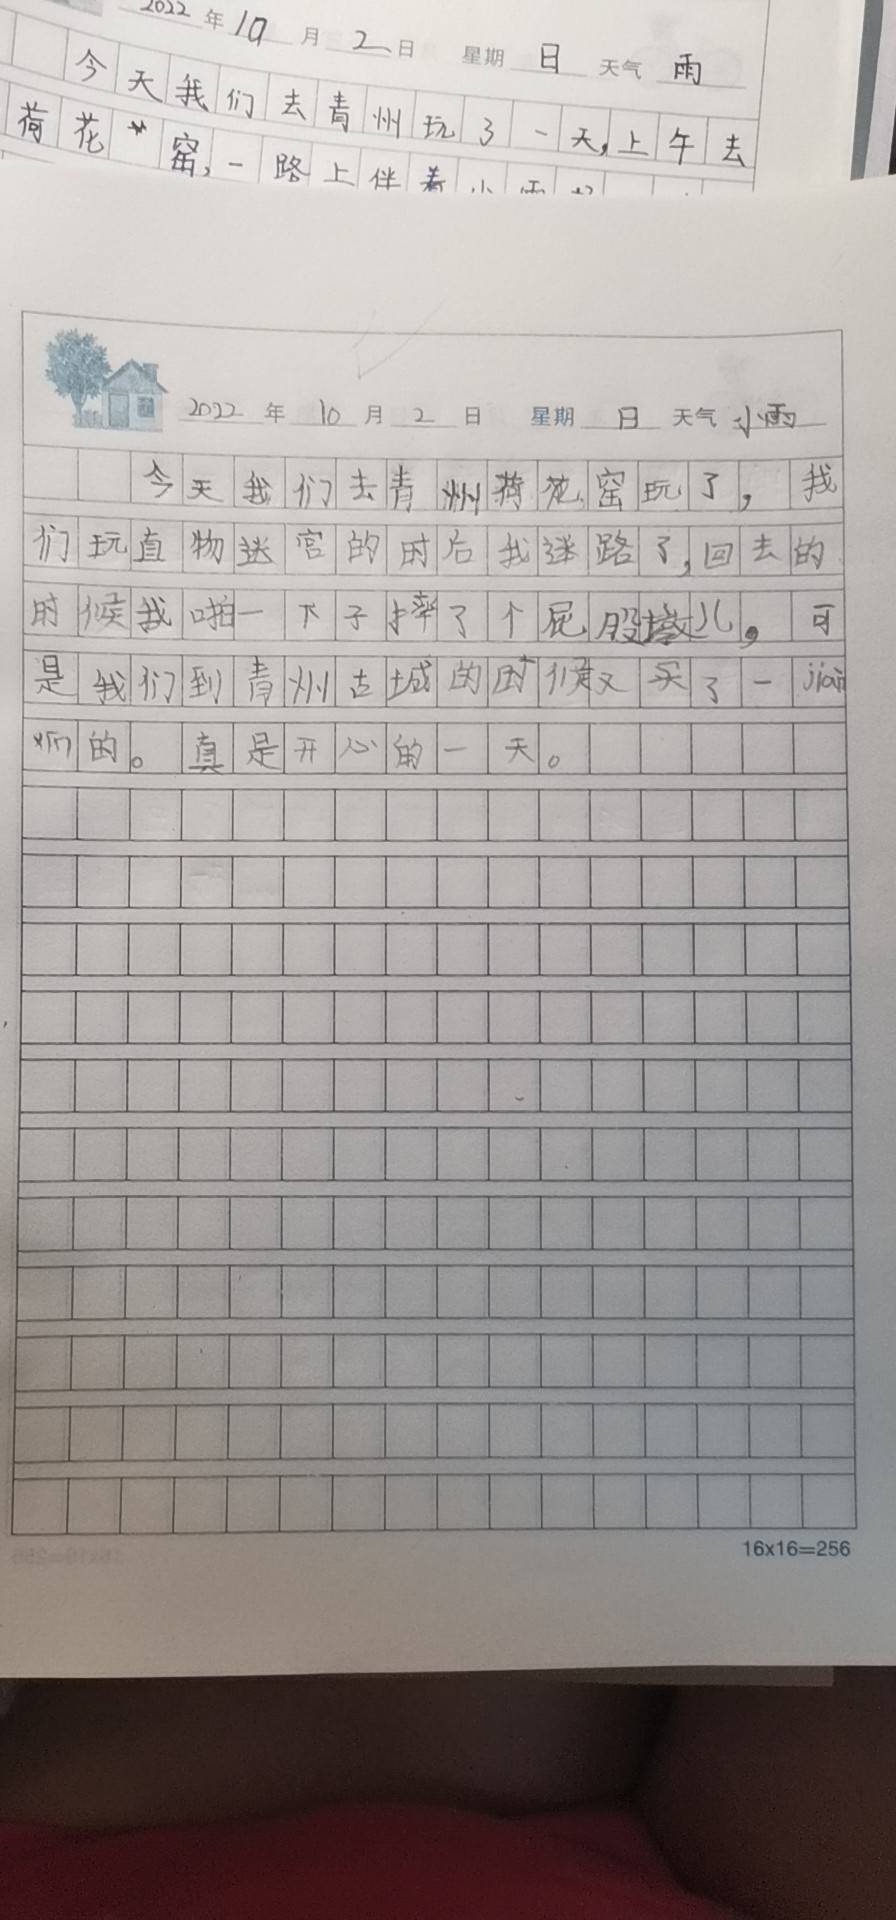 2022年10月2日 星期日 天气 雨
今天我们去青州玩了一天,上午去
荷花窑,一路上伴着小雨
2022年10月2日 星期日 天气小雨
今天我们去青州荷花窑玩了,我
们玩直物迷宫的时后我迷路了,回去的
时候我啪一下子摔了个屁股墩儿。可
是我们到青州古城的时候又买了一jiàn
新的。真是开心的一天。
16x16=256